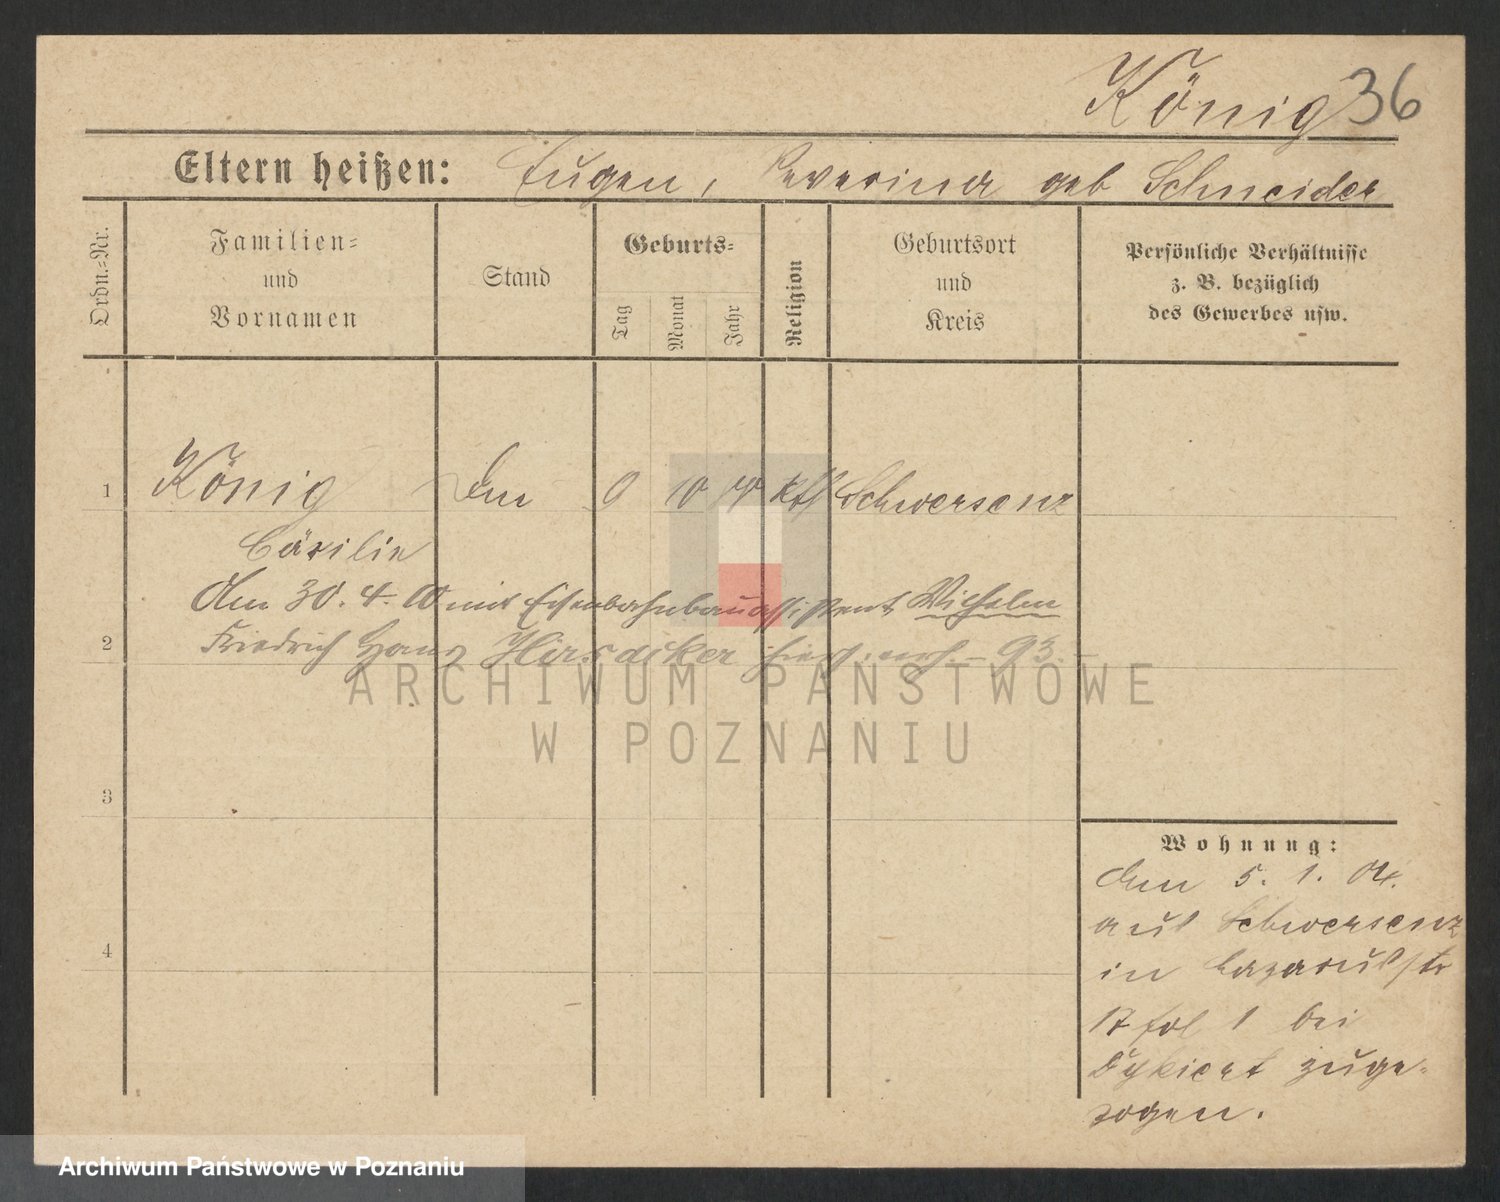 König 36
Eltern heißen: Eugen, Severina geb Schneider
Ordn.-Nr.
Familien-
und
Vornamen
Stand
Geburts-
Tag
Monat
Jahr
Religion
Geburtsort
und
Kreis
Persönliche Verhältnisse
z. B. bezüglich
des Gewerbes usw.
1 König Schwersenz
Cäzilie
Am 30. 4. 10 mit Eisenbahnbauassistent Wilhelm
2 Friedrich Hans
3
4
Wohnung:
den 5. 1. 04.
aus Schwersenz
in Lazarusstr
17 fol 1 bei
Dykiert zuge-
zogen.
ARCHIWUM PAŃSTWOWE
W POZNANIU
Archiwum Państwowe w Poznaniu